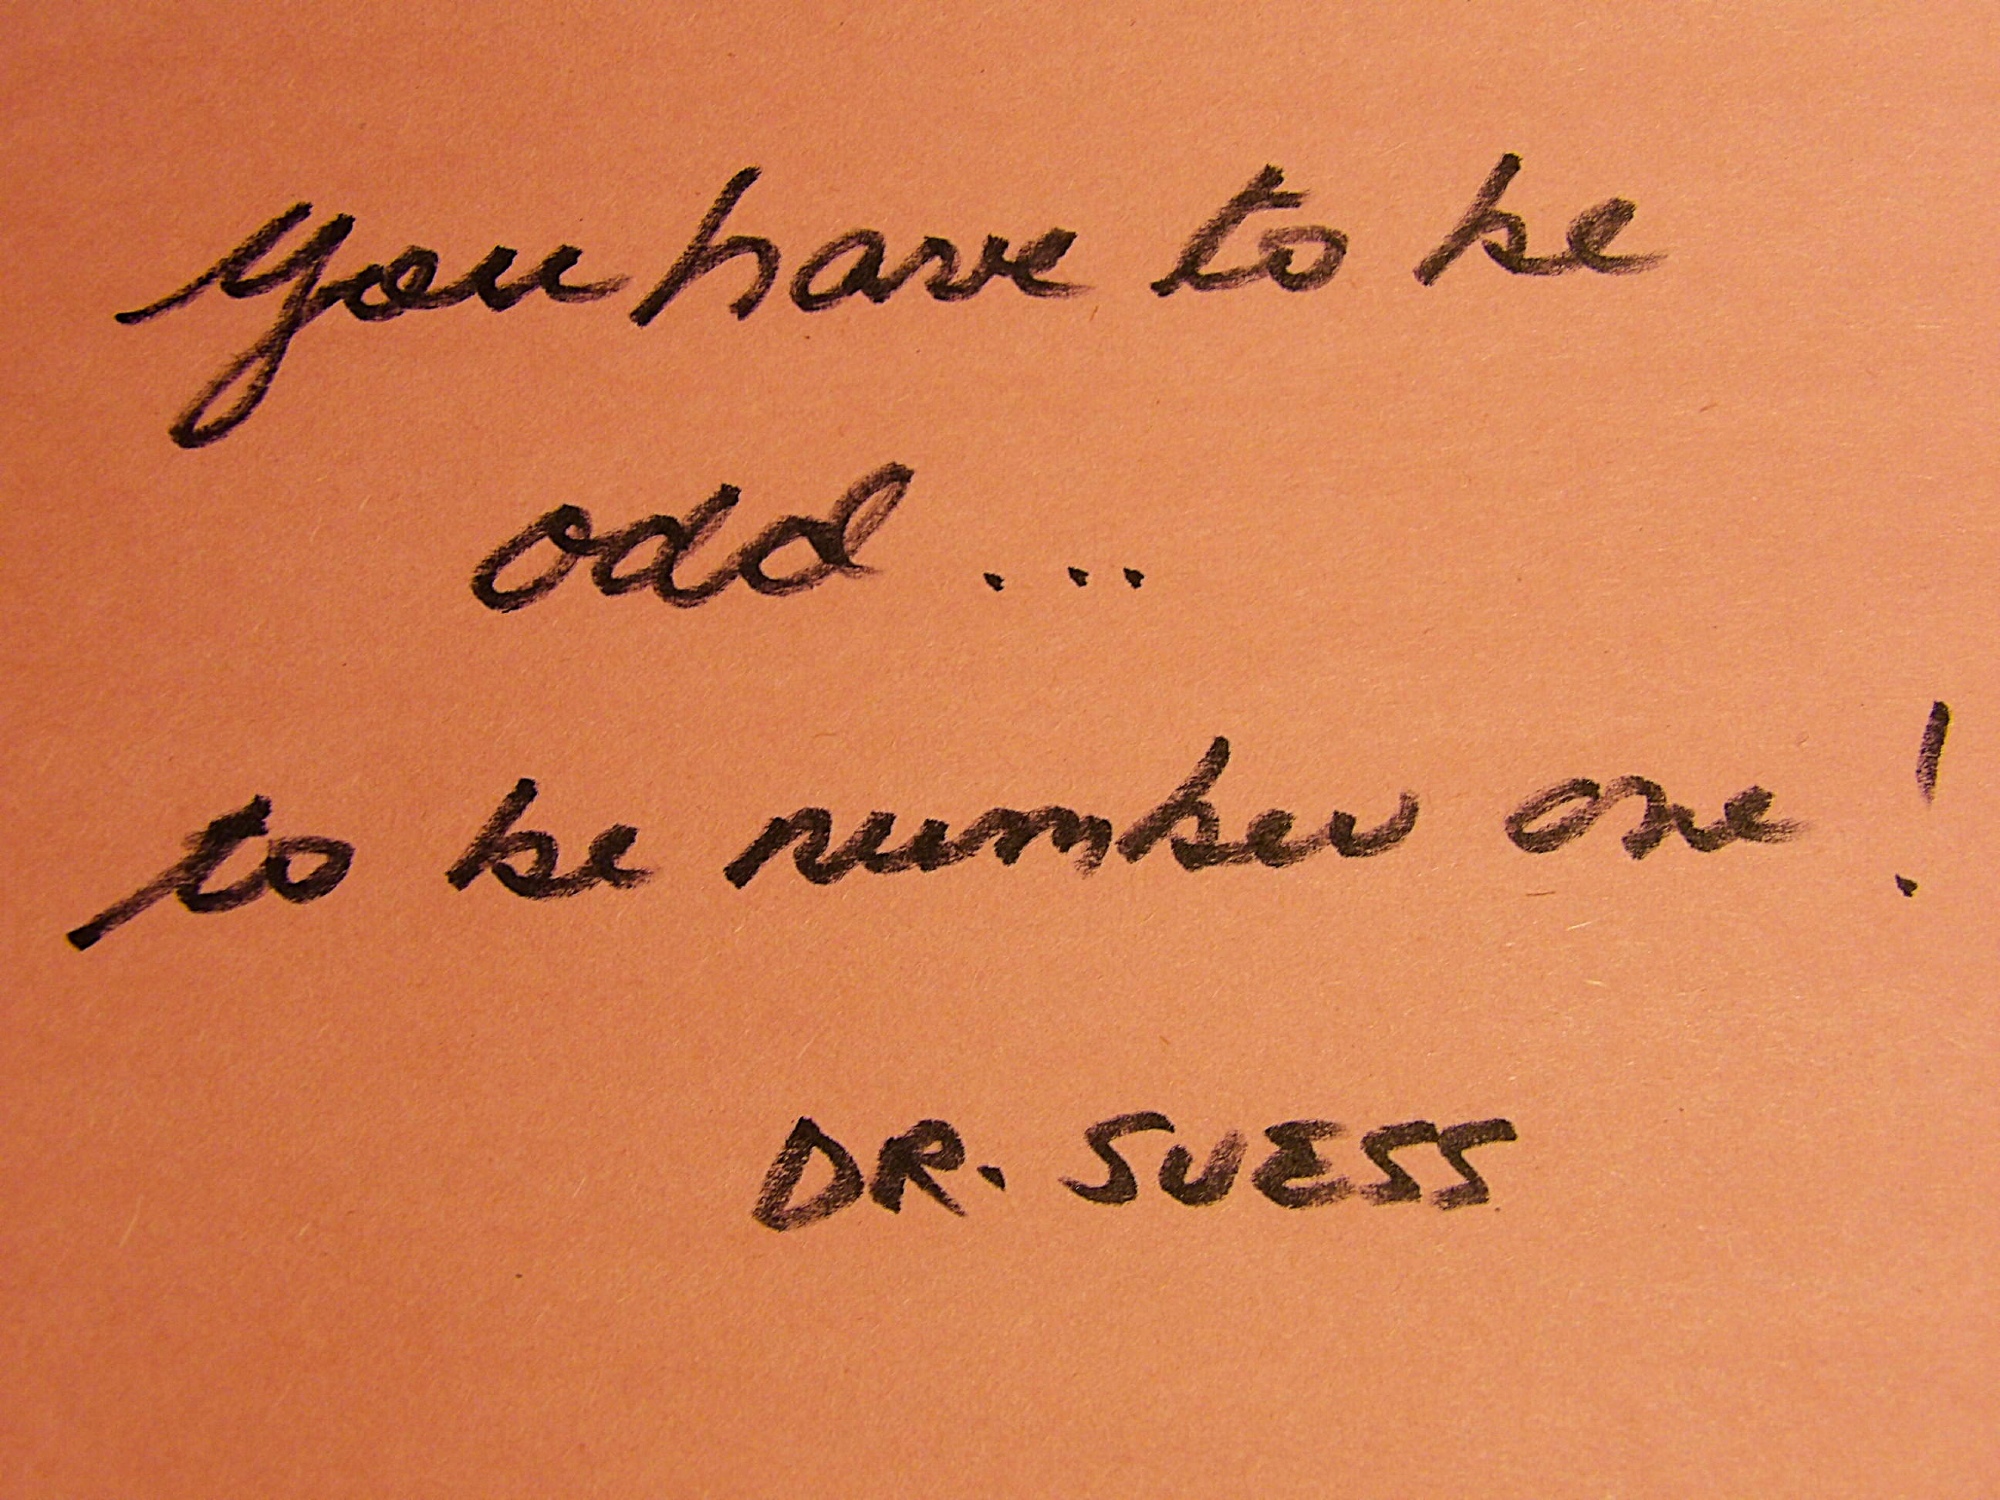 you have to be
odd...
to be number one!
DR. SUESS